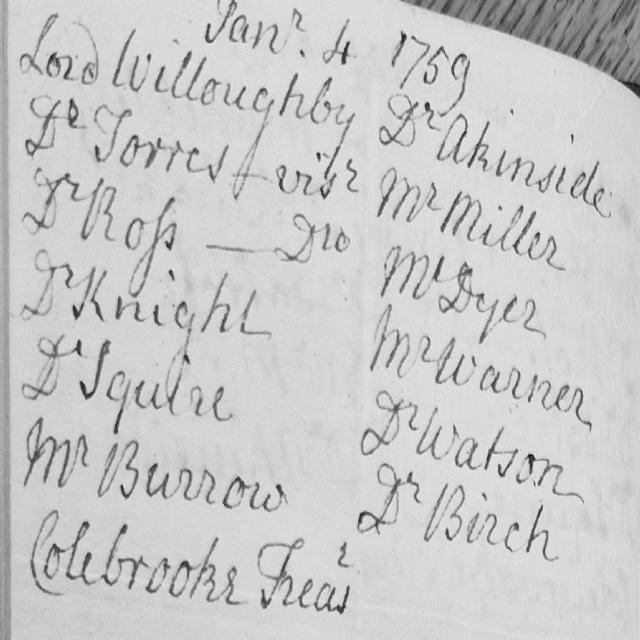 Janr. 4 1759
Lord Willoughby
Dr Torres - visr
Dr Ross — Dto
Dr Knight
Dr Squire
Mr Burrow
Colebrooke Trear
Dr Akinside
Mr Miller
Mr Dyer
Mr Warner
Dr Watson
Dr Birch